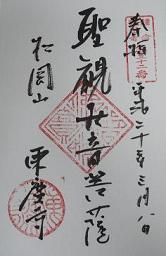 奉拝
平成二十年三月八日
聖観世音菩薩
松岡山
東慶寺